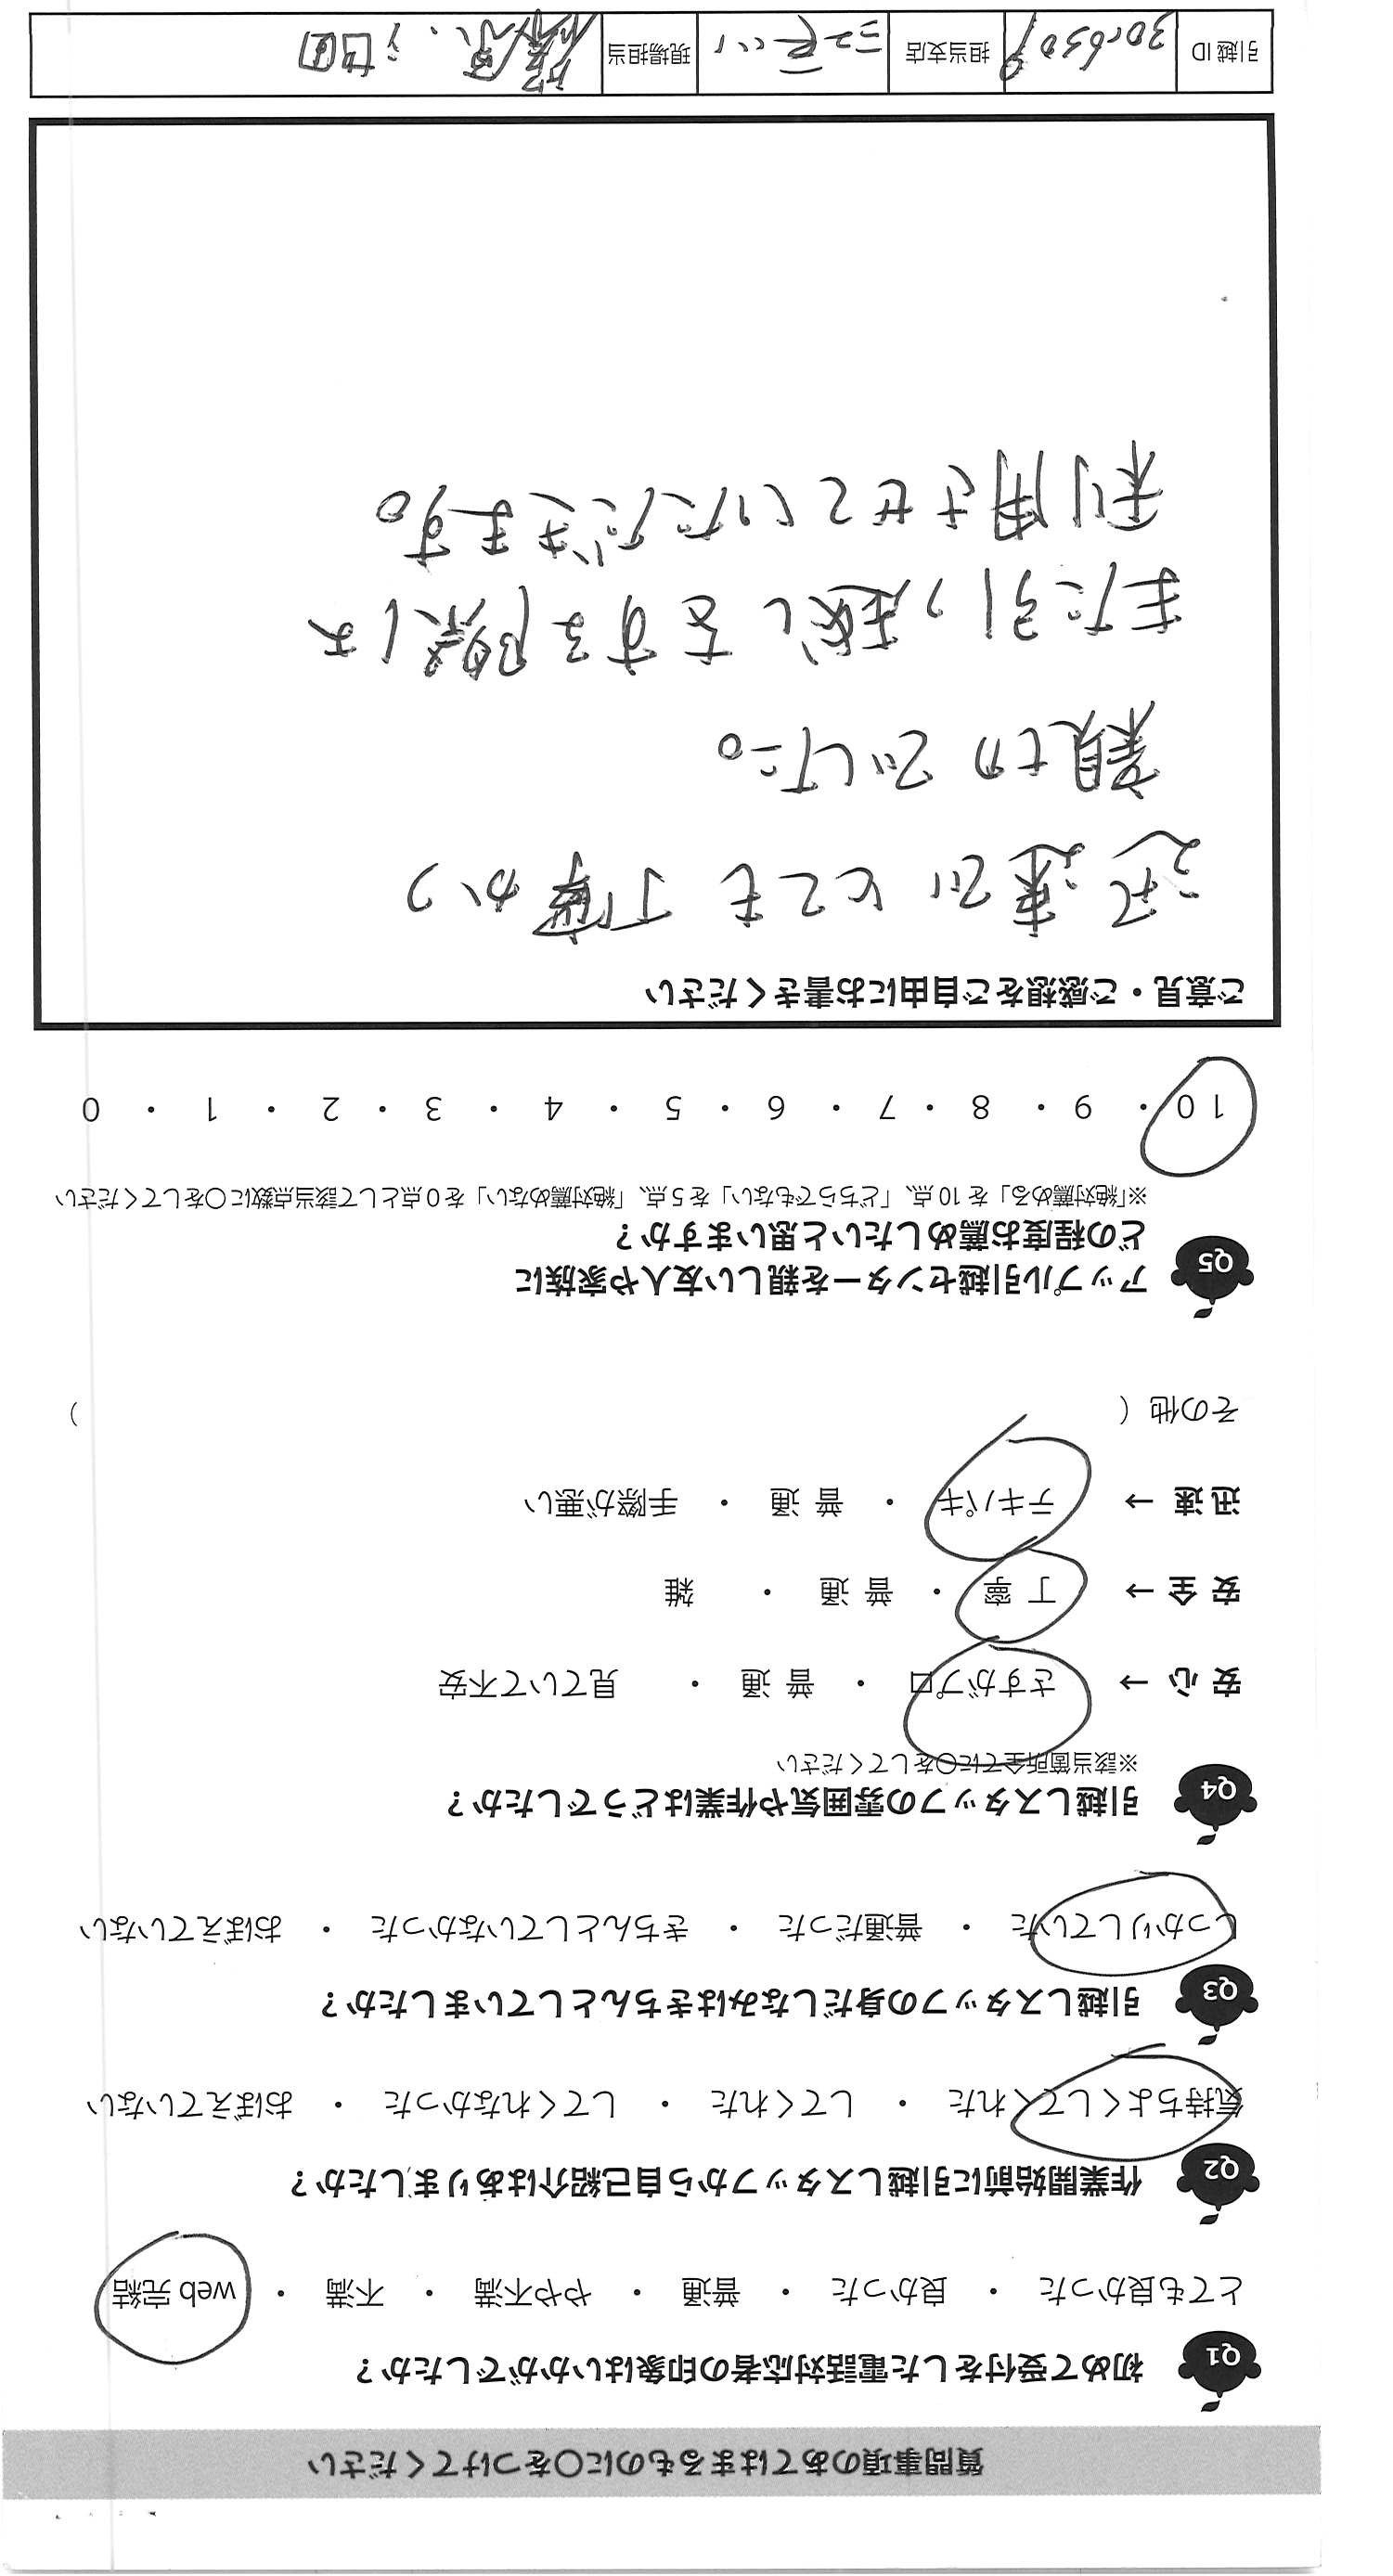 質問事項のあてはまるものに○をつけてください
Q1 初めて受付をした電話対応者の印象はいかがでしたか？
とても良かった ・ 良かった ・ 普通 ・ やや不満 ・ 不満 ・ web 完結
Q2 作業開始前に引越しスタッフから自己紹介はありましたか？
気持ちよくしてくれた ・ してくれた ・ してくれなかった ・ おぼえていない
Q3 引越しスタッフの身だしなみはきちんとしていましたか？
しっかりしていた ・ 普通だった ・ きちんとしていなかった ・ おぼえていない
Q4 引越しスタッフの雰囲気や作業はどうでしたか？
※該当箇所全てに○をしてください
安 心 → さすがプロ ・ 普 通 ・ 見ていて不安
安 全 → 丁 寧 ・ 普 通 ・ 雑
迅 速 → テキパキ ・ 普 通 ・ 手際が悪い
その他 （ ）
Q5 アップル引越センターを親しい友人や家族に
どの程度お薦めしたいと思いますか？
※「絶対薦める」を 10 点、「どちらでもない」を 5 点、「絶対薦めない」を 0 点として該当点数に○をしてください
10 ・ 9 ・ 8 ・ 7 ・ 6 ・ 5 ・ 4 ・ 3 ・ 2 ・ 1 ・ 0
ご意見・ご感想をご自由にお書きください
迅速でとても丁寧かつ
親切でした。
また引っ越しをする際には
利用させていただきます。
引越 ID 担当支店 現場担当